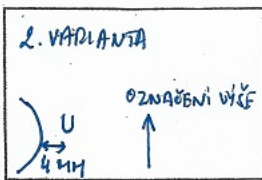 2. VARIANTA
OZNAČENÍ VÝŠE
U
4 MM